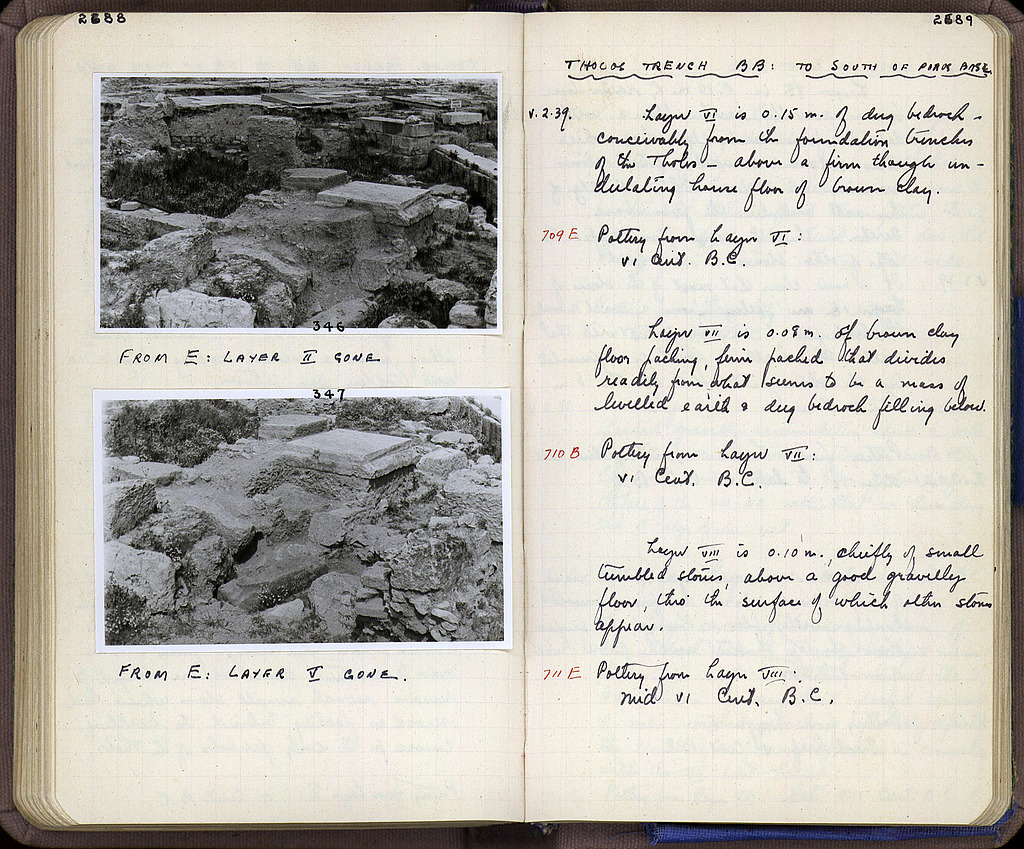 2688
346
FROM E: LAYER II GONE
347
FROM E: LAYER V GONE.
2689
THOLOS TRENCH BB: TO SOUTH OF POROS BASE
V.2.39.
Layer VI is 0.15 m. of dug bedrock –
conceivably from the foundation trenches
of the Tholos – above a firm though un-
dulating house floor of brown clay.
709 E Pottery from Layer VI:
VI Cent. B.C.
Layer VII is 0.08 m. of brown clay
floor packing, firm packed that divides
readily from what seems to be a mass of
levelled earth & dug bedrock filling below.
710 B Pottery from Layer VII:
VI Cent. B.C.
Layer VIII is 0.10 m., chiefly of small
tumbled stones, above a good gravelly
floor, thro the surface of which other stones
appear.
711 E Pottery from Layer VIII:
mid VI Cent. B.C.